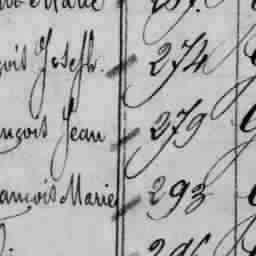 Marie
çois Joseph 274
ançois Jean 279
ançois Marie 293